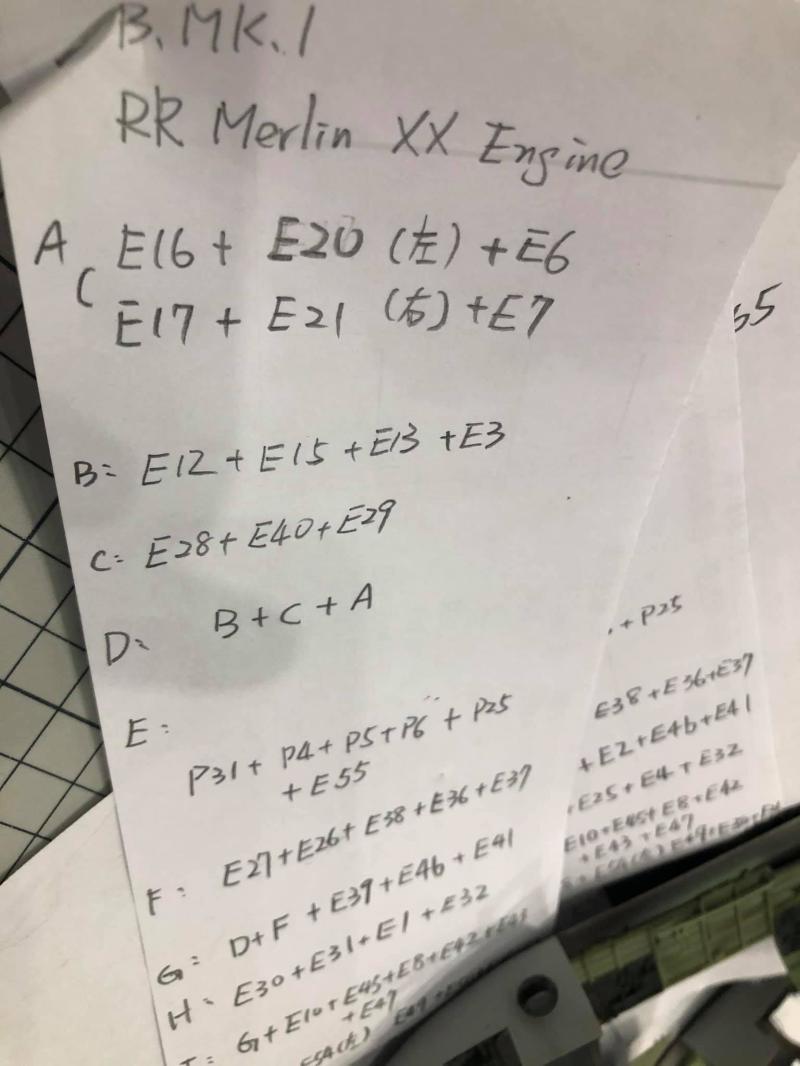 B. MK. 1
RR Merlin XX Engine
A E16 + E20 (左) + E6
C E17 + E21 (右) + E7
B= E12 + E15 + E13 + E3
C= E28 + E40 + E29
D= B + C + A
E: P31 + P4 + P5 + P6 + P25
+ E55
F: E27 + E26 + E38 + E36 + E37
G: D + F + E39 + E46 + E41
H: E30 + E31 + E1 + E32
I: G + E10 + E45 + E8 + E42 + E43
+ E47
E5A(左)
55
+ P25
E38 + E36 + E37
+ E2 + E46 + E41
+ E25 + E4 + E32
E10 + E45 + E8 + E42
+ E43 + E47